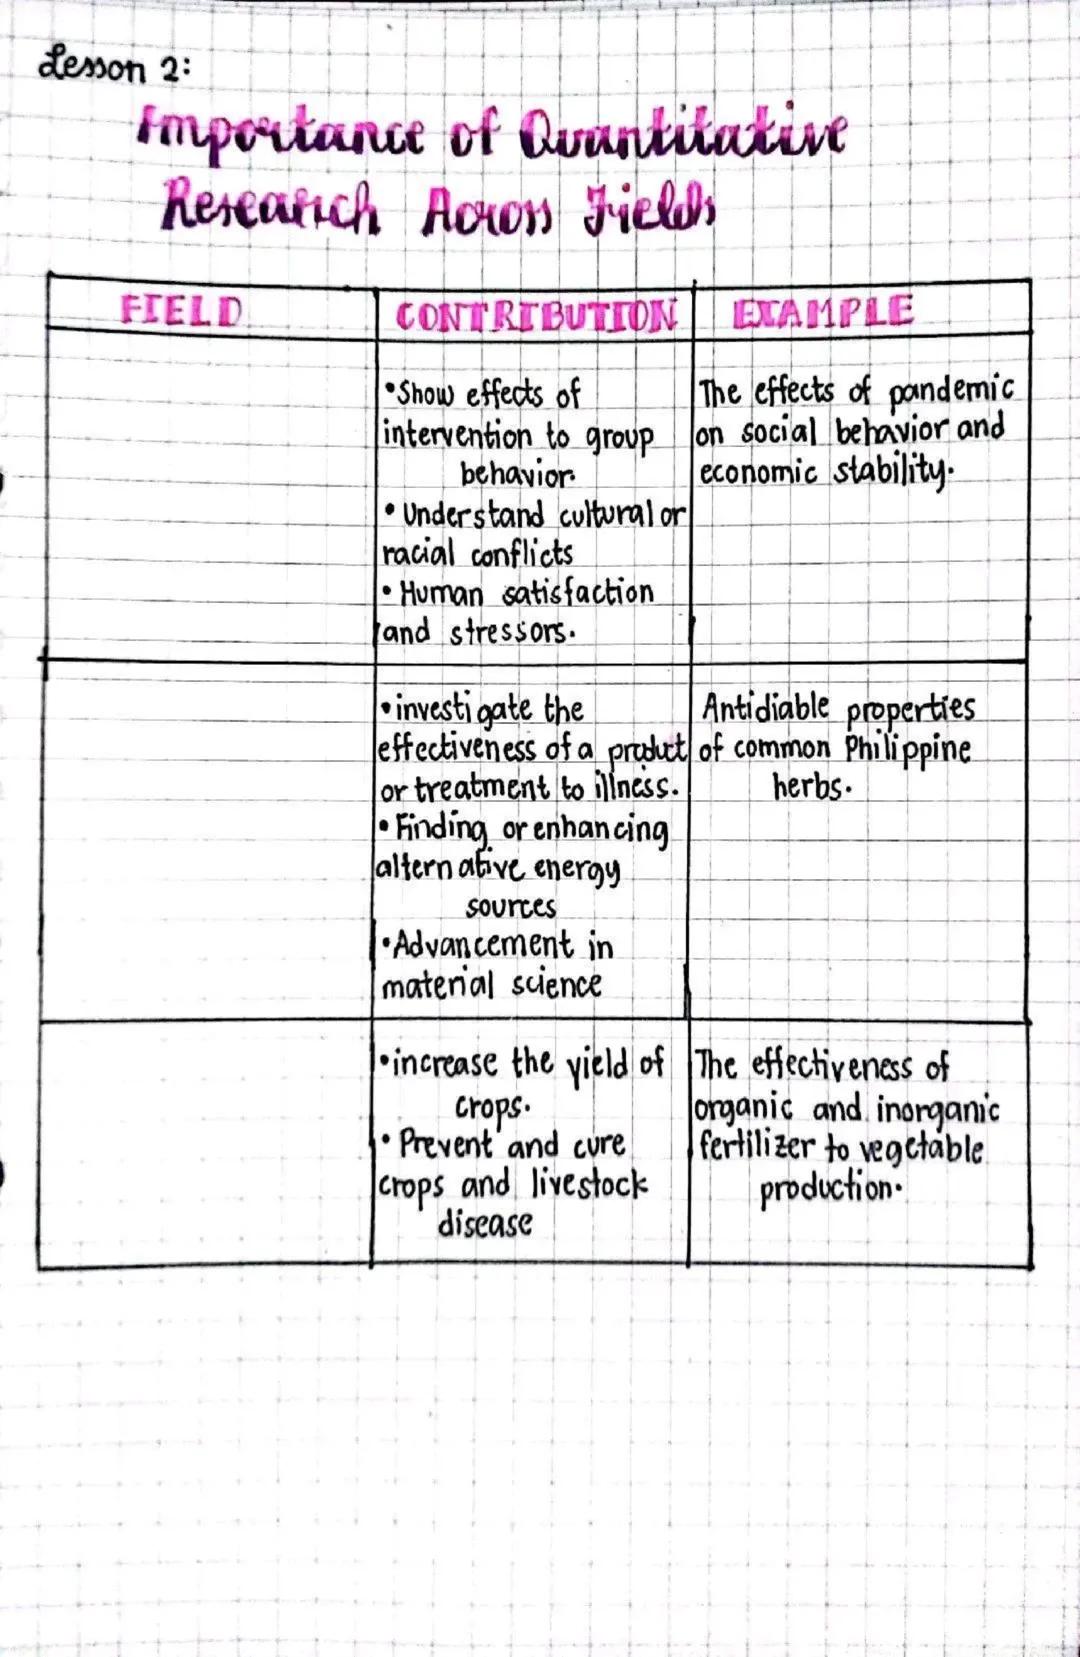 Lesson 2:
Importance of Quantitative
Research Across Fields
FIELD
CONTRIBUTION
EXAMPLE
•Show effects of
intervention to group
behavior.
• Understand cultural or
racial conflicts
• Human satisfaction
and stressors.
The effects of pandemic
on social behavior and
economic stability.
•investigate the
effectiveness of a product
or treatment to illness.
• Finding or enhancing
alternative energy
sources
•Advancement in
material science
Antidiable properties
of common Philippine
herbs.
•increase the yield of
crops.
• Prevent and cure
crops and livestock
disease
The effectiveness of
organic and inorganic
fertilizer to vegetable
production.